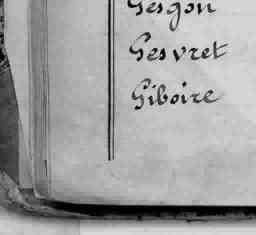 Gesgon
Gesvret
Giboire